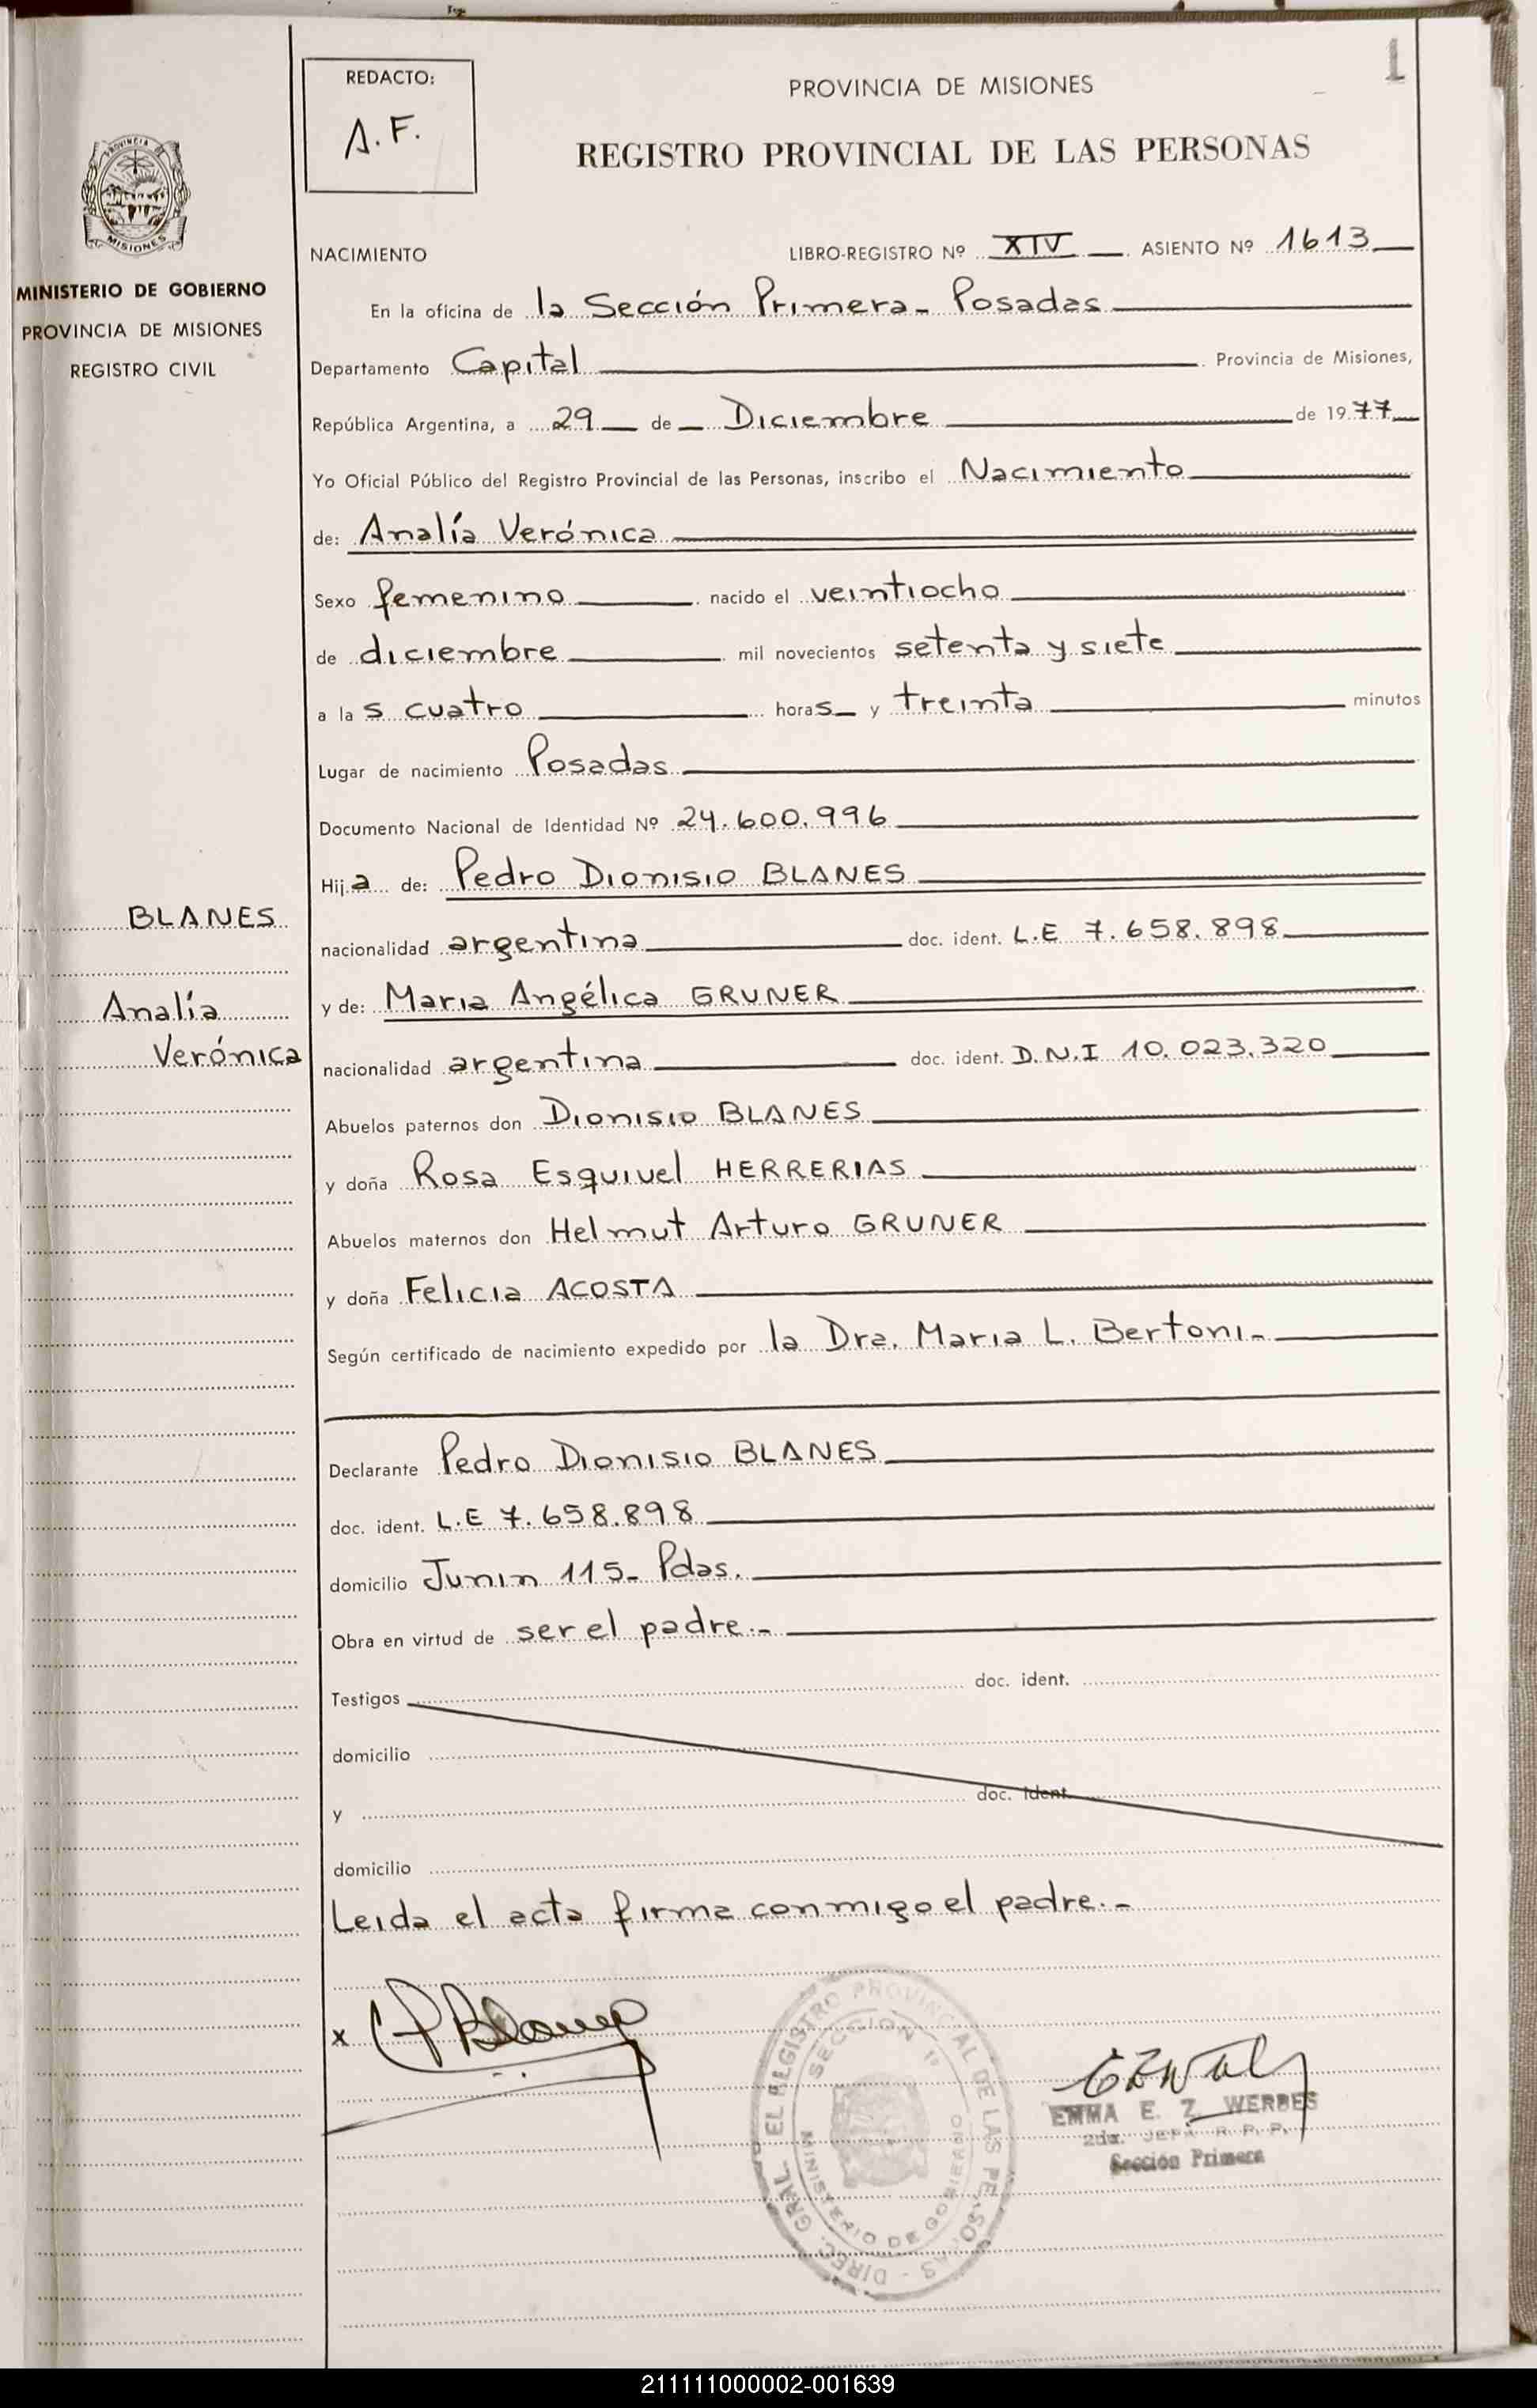 1
REDACTO:
A.F.
PROVINCIA DE MISIONES
REGISTRO PROVINCIAL DE LAS PERSONAS
PROVINCIA DE
MISIONES
MINISTERIO DE GOBIERNO
PROVINCIA DE MISIONES
REGISTRO CIVIL
NACIMIENTO LIBRO-REGISTRO Nº XIV ASIENTO Nº 1613
En la oficina de la Sección Primera - Posadas
Departamento Capital Provincia de Misiones,
República Argentina, a 29 de Diciembre de 1977
Yo Oficial Público del Registro Provincial de las Personas, inscribo el Nacimiento
de: Analía Verónica
Sexo femenino nacido el veintiocho
de diciembre mil novecientos setenta y siete
a las cuatro horas y treinta minutos
Lugar de nacimiento Posadas
Documento Nacional de Identidad Nº 24.600.996
Hija de: Pedro Dionisio BLANES
BLANES
nacionalidad argentina doc. ident. L.E 7.658.898
Analía
y de: Maria Angélica GRUNER
Verónica
nacionalidad argentina doc. ident. D.N.I 10.023.320
Abuelos paternos don Dionisio BLANES
y doña Rosa Esquivel HERRERIAS
Abuelos maternos don Helmut Arturo GRUNER
y doña Felicia ACOSTA
Según certificado de nacimiento expedido por la Dra. Maria L. Bertoni-
Declarante Pedro Dionisio BLANES
doc. ident. L.E 7.658.898
domicilio Junin 115- Pdas.
Obra en virtud de ser el padre.-
Testigos doc. ident.
domicilio
y doc. ident.
domicilio
Leida el acta firma conmigo el padre.-
x PBlanes
DIREC. GRAL. EL REGISTRO PROVINCIAL DE LAS PERSONAS -
SECCION 1º
MINISTERIO DE GOBIERNO
EMMA E. Z. WERBES
2da. JEFA R. P. P.
Sección Primera
211111000002-001639